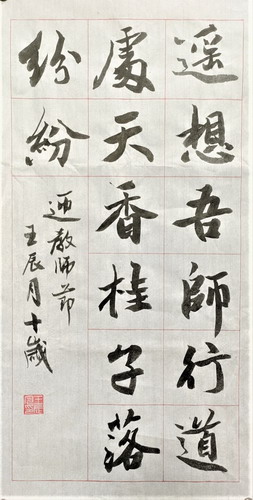 遥想吾師行道
處天香桂子落
紛紛
迎教師節
壬辰月十歲